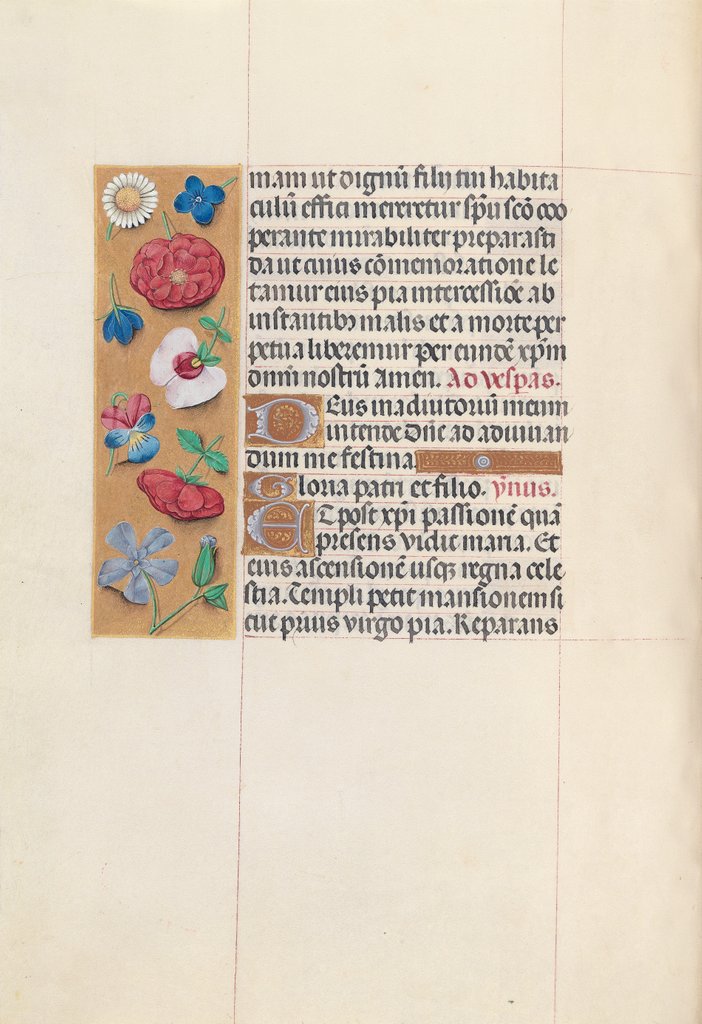 mam ut dignũ filij tui habita
culũ effici mereretur spũ scõ coo
perante mirabiliter preparasti
da ut cuius cõmemoratione le
tamur eius pia intercessiõe ab
instantibꝫ malis et a morte per
petua liberemur per eundẽ xp̃m
dnm̃ nostrũ Amen. Ad vespas.
Deus in adiutoriũ meum
intende Dñe ad adiuuan
dum me festina
Gloria patri et filio. ym̃us.
Et post xp̃i passionẽ quã
presens vidit maria. Et
eius ascensionẽ usqꝫ regna cele
stia. Templi petit mansionem si
cut prius virgo pia. Reparans